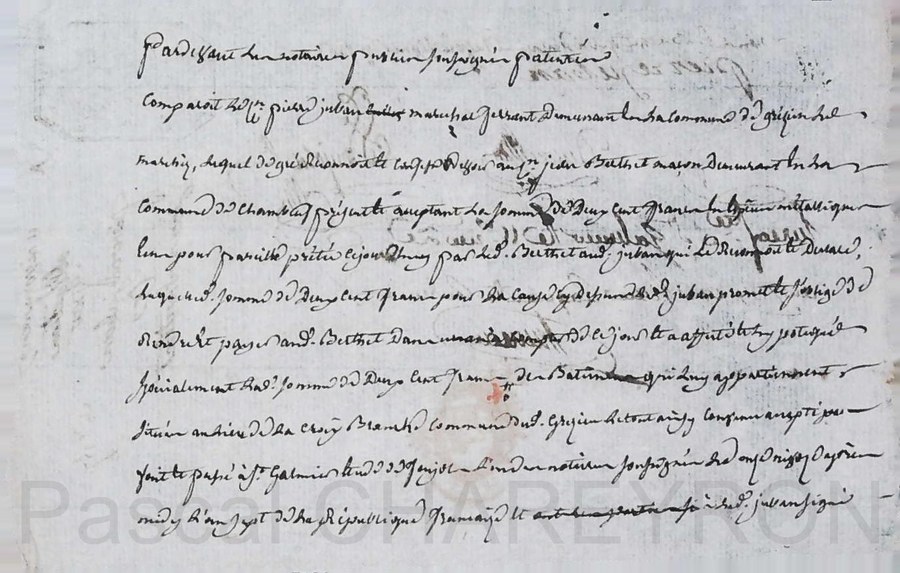 Pardevant les notaires publics soussignés patentés
Comparoit le Cn pierre juban marechal ferrant demeurant en la commune de grézieu le
marché, lequel de gré reconnoit et confesse devoir au Cn jean Berthet maçon demeurant en la
commune de Chambœuf présent et acceptant la somme de Deux cent francs en espèces métalliques
et ce pour pareille prétée ce jourdhuy par led. Berthet aud. juban qui le Reconnoit et Declare,
laquelle d. somme de Deux cent francs pour la cause cy dessus led. juban promet et s'oblige de
Rendre et payer aud. Berthet dans de ce jour et a affecté et hypotequé
spécialement lad. somme de Deux cent francs des Batimens qui luy appartiennent
situés au lieu de la Croix Blanche commune dud. Grézieu le tout ainsy convenu accepté
fait et passé à St. Galmier etude de l'un des notaires soussignés le onze
midy l'an sept de la République française et led. juban signé
Pascal CHAREYRON